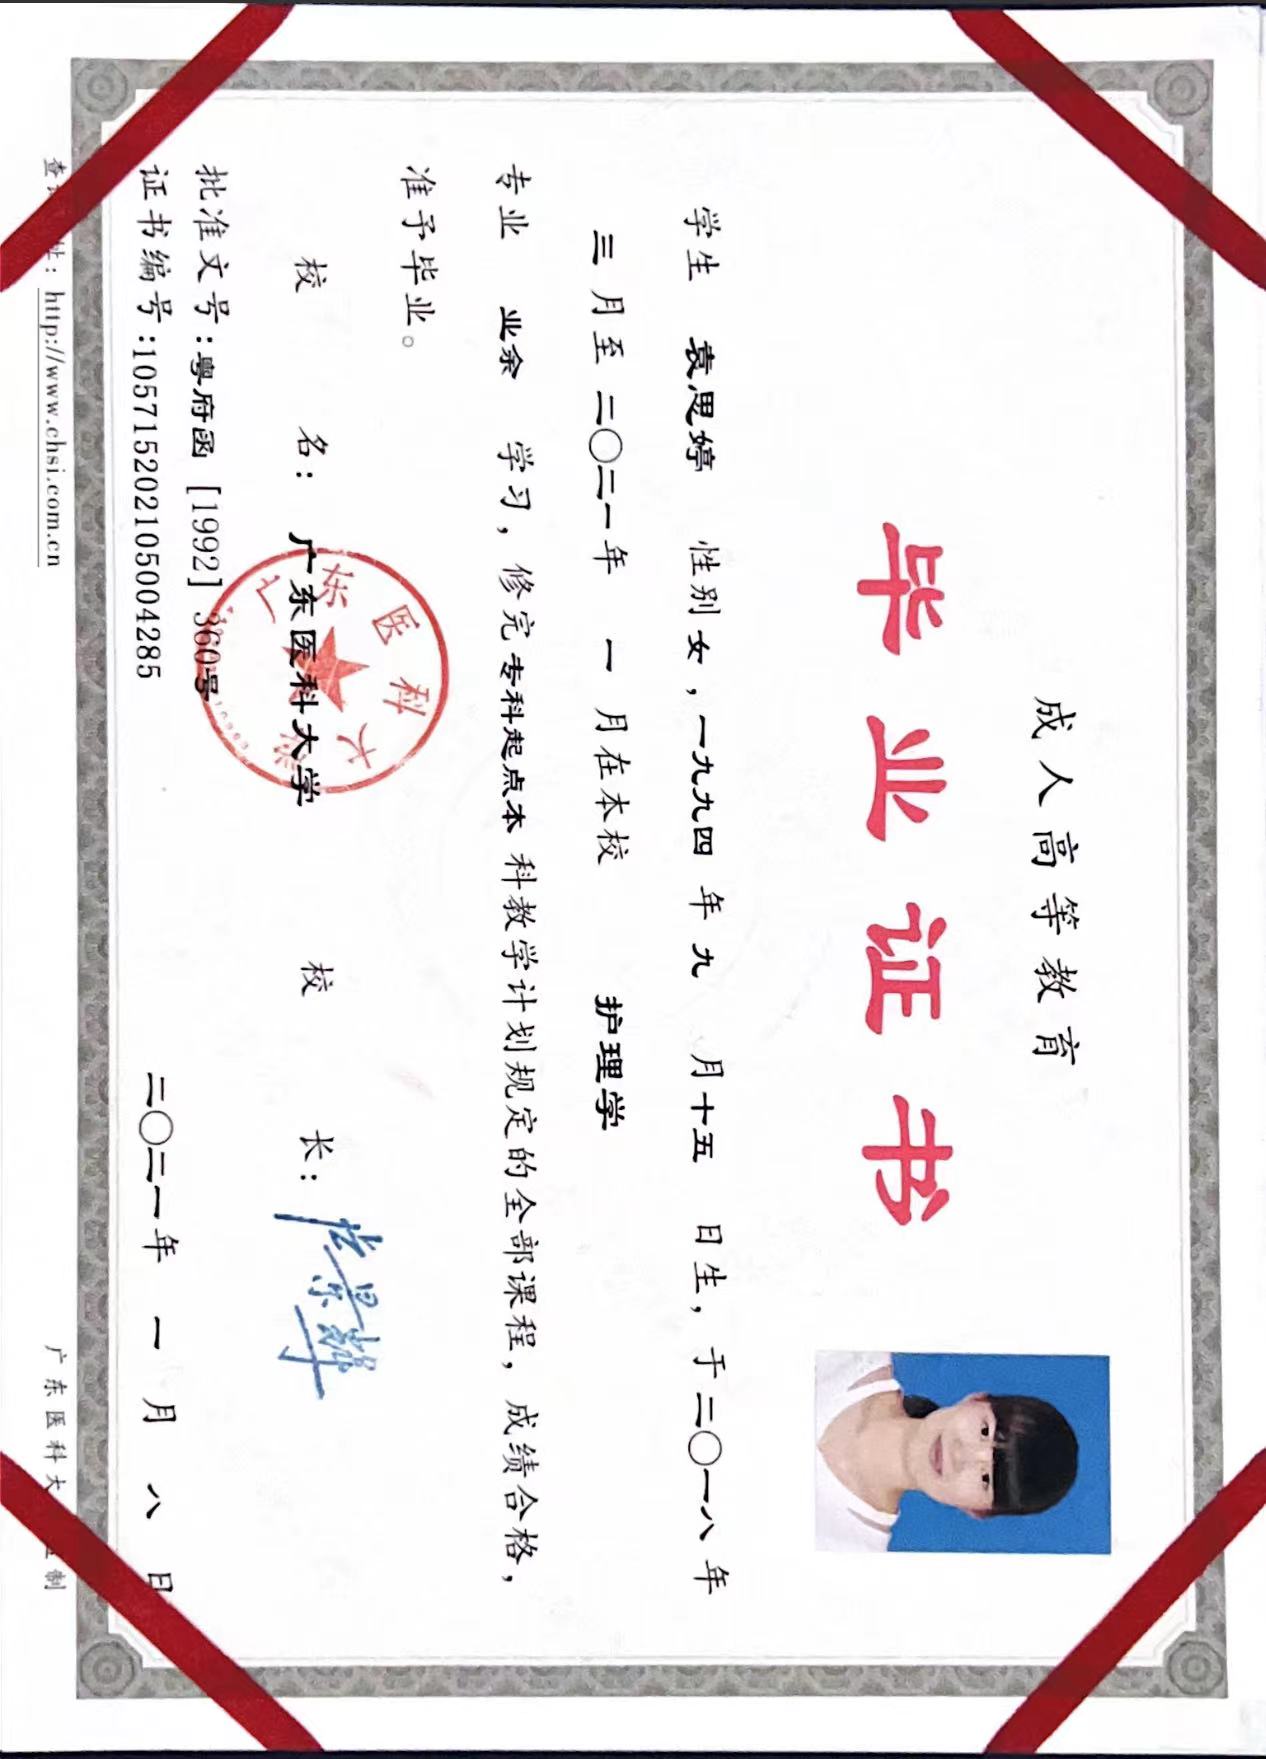 成人高等教育
毕业证书
学生 袁思婷 性别女，一九九四年九月十五日生，于二〇一八年
三月至二〇二一年一月在本校 护理学
专业 业余 学习，修完专科起点本科教学计划规定的全部课程，成绩合格，
准予毕业。
校名：广东医科大学 校长：
批准文号：粤府函［1992］360号
证书编号：105715202105004285
二〇二一年一月八日
广东医科大学
查 址：http://www.chsi.com.cn
广东医科大 制